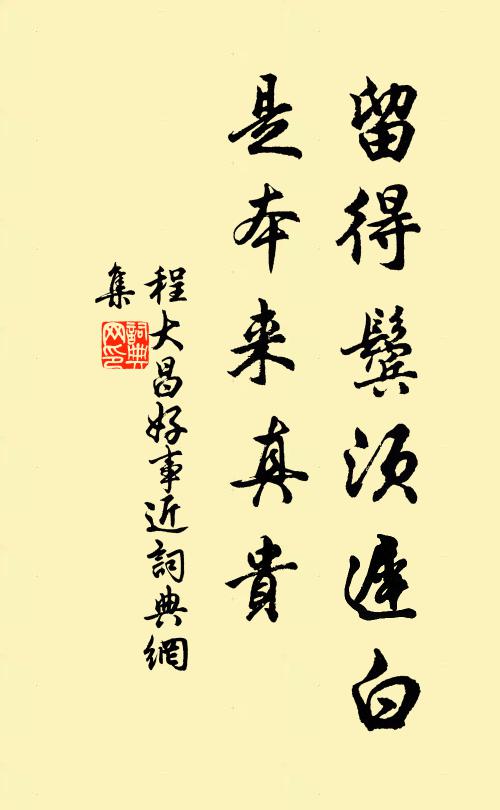 留得鬢須遲白
是本来真貴
程大昌好事近詞典網
集
詞典
网印